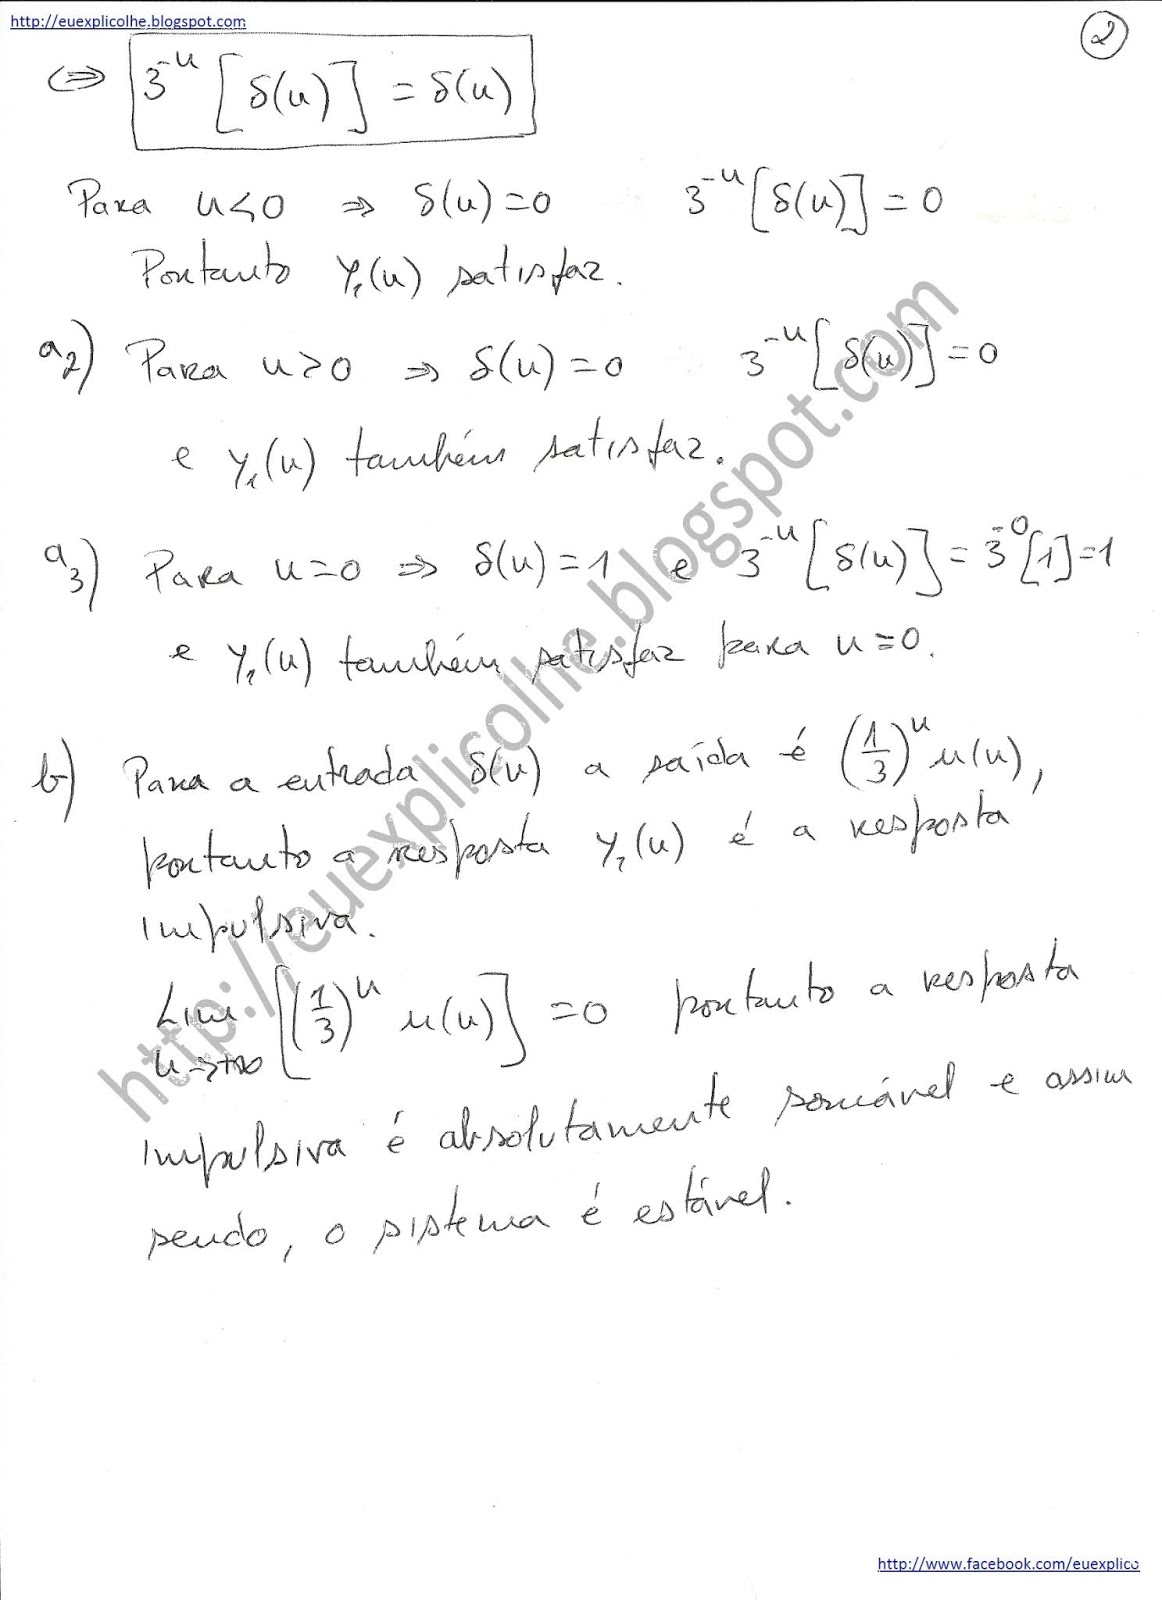 http://euexplicolhe.blogspot.com
2
⇔ 3^{-n} [δ(n)] = δ(n)
Para n<0 ⇒ δ(n)=0 3^{-n}[δ(n)] = 0
Portanto y₁(n) satisfaz.
a₂) Para n>0 ⇒ δ(n)=0 3^{-n}[δ(n)]=0
e y₁(n) também satisfaz.
a₃) Para n=0 ⇒ δ(n)=1 e 3^{-n}[δ(n)]=3^{-0}[1]=1
e y₁(n) também satisfaz para n=0.
b) Para a entrada δ(n) a saída é (1/3)^n u(n),
portanto a resposta y₁(n) é a resposta
impulsiva.
Lim n→+∞ [(1/3)^n u(n)] = 0 portanto a resposta
impulsiva é absolutamente somável e assim
sendo, o sistema é estável.
http://euexplicolhe.blogspot.com
http://www.facebook.com/euexplico